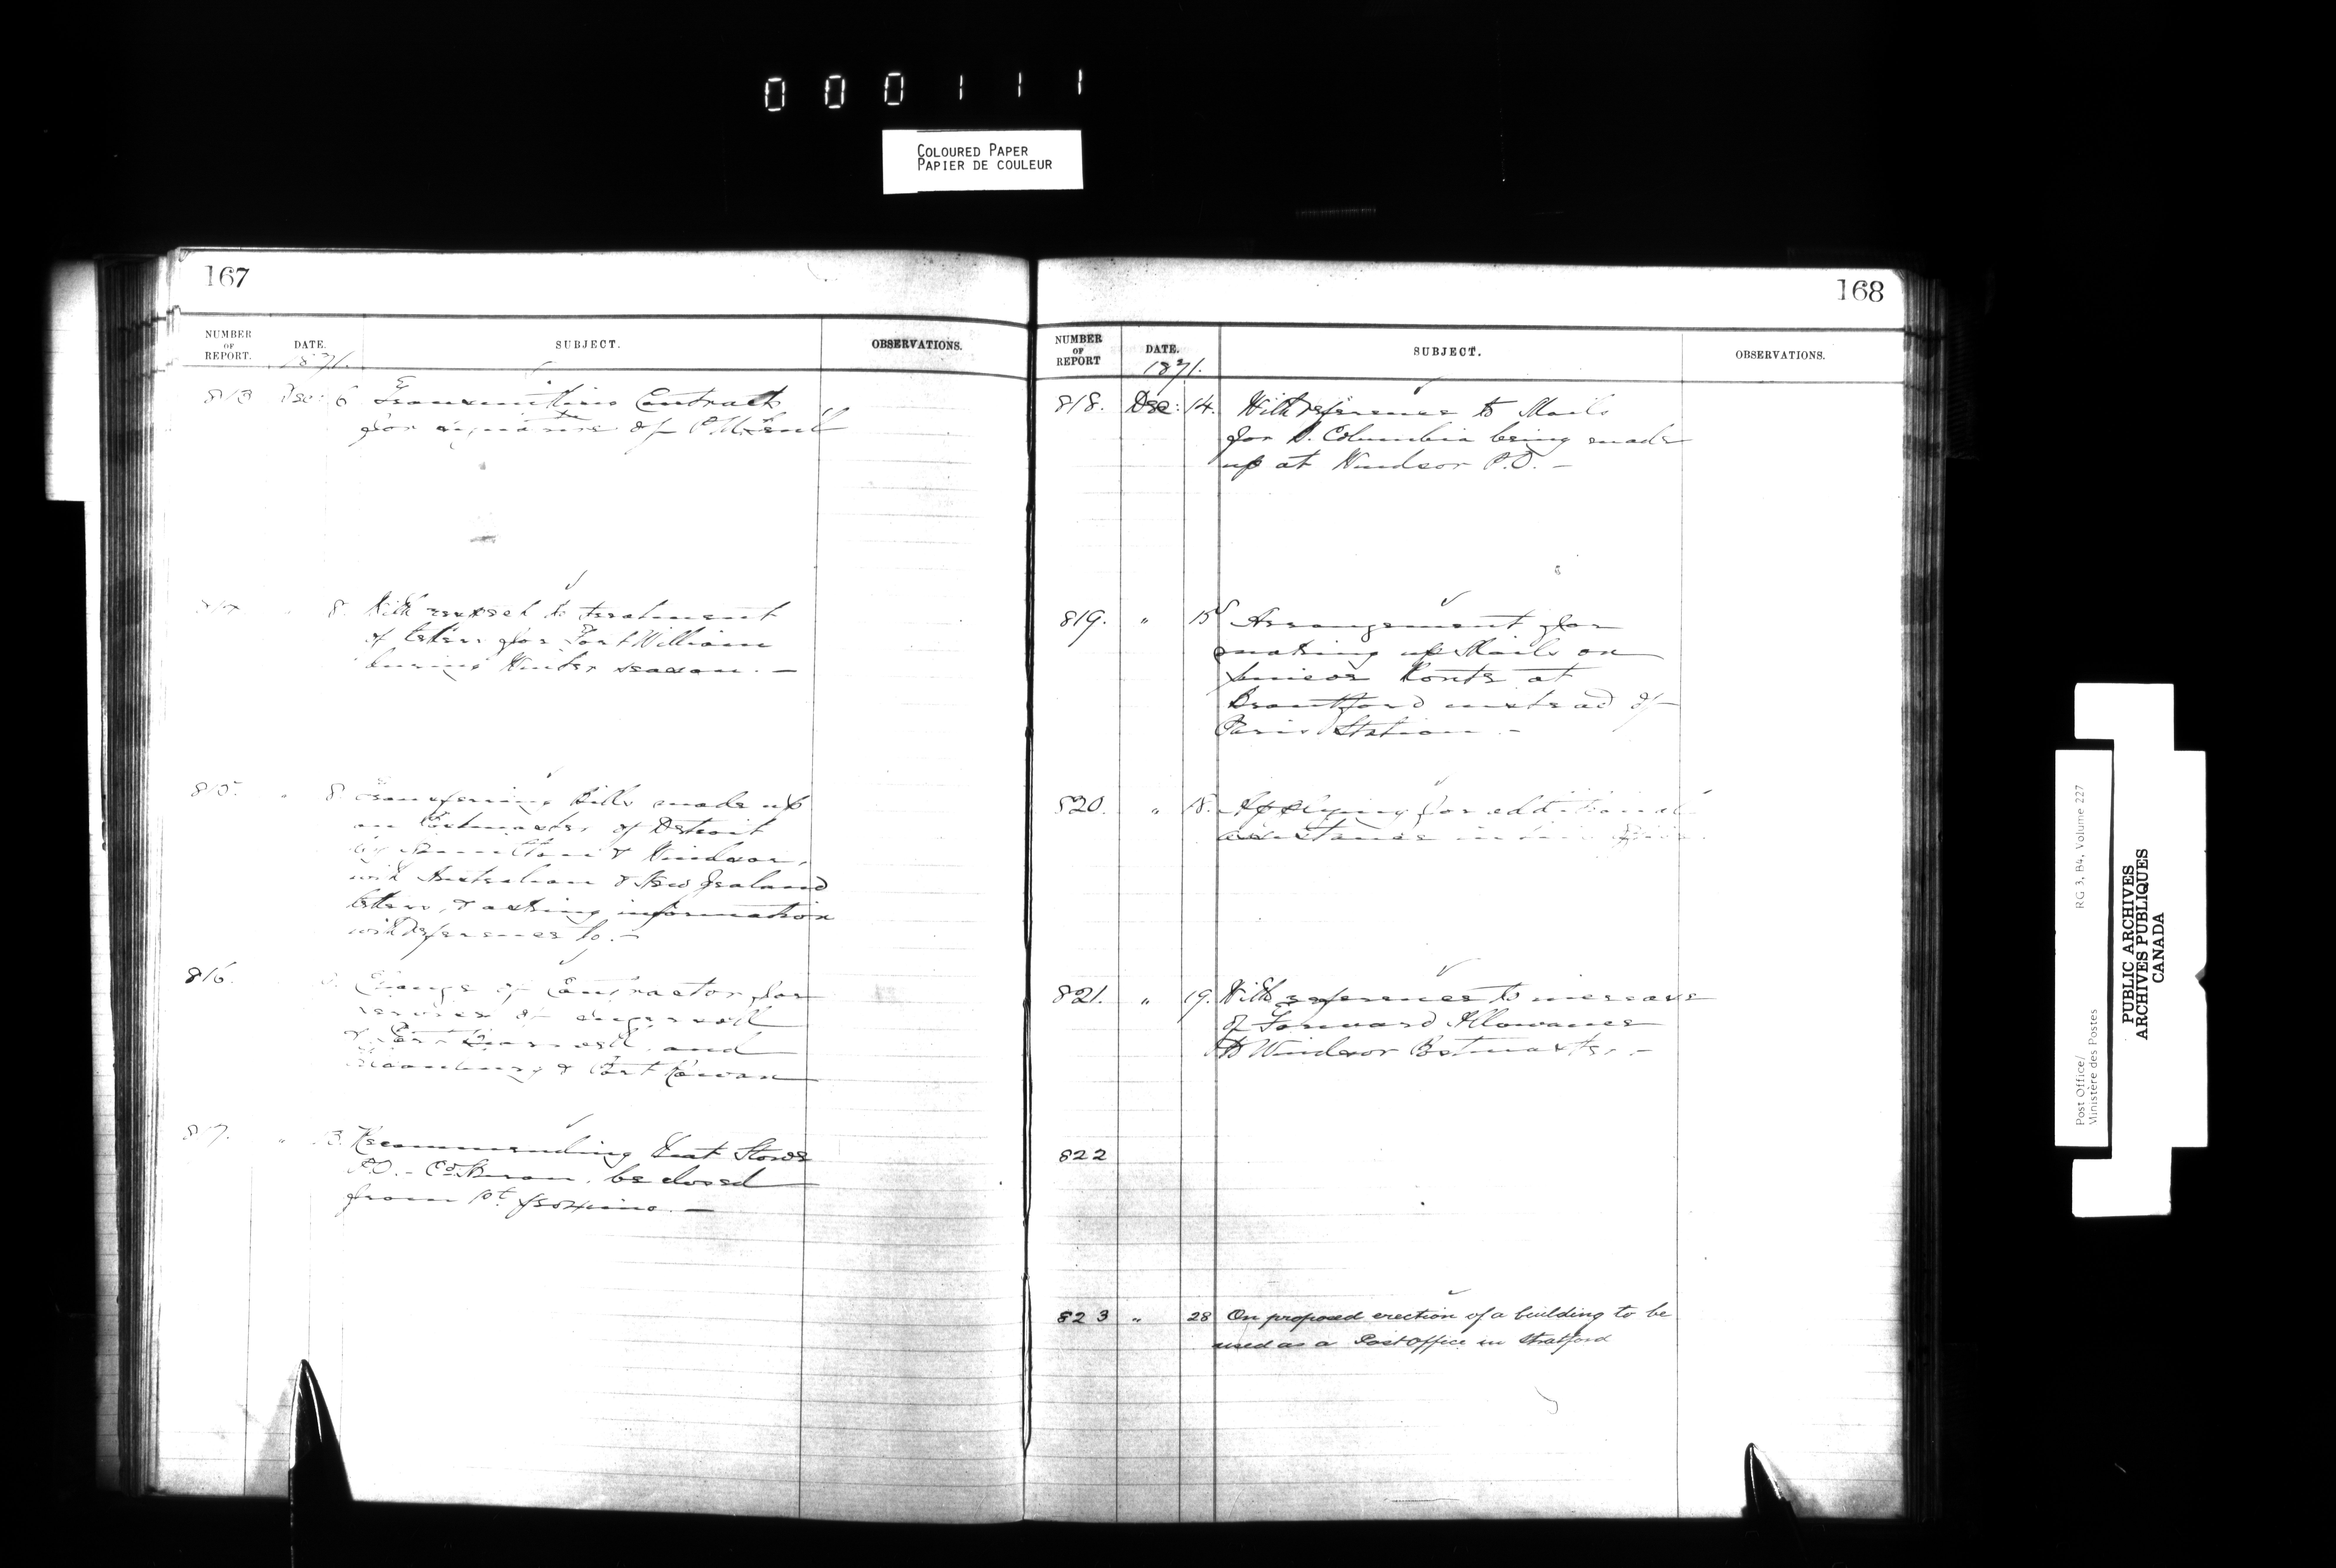 000111
COLOURED PAPER
PAPIER DE COULEUR
167
NUMBER OF REPORT.
DATE.
SUBJECT.
OBSERVATIONS.
1871.
813 Dec: 6 Transmitting Contracts
for signature of P.M. Genl
8. With respect to treatment
of letters for Fort William
during Winter season. —
815. " 8. Transferring Bills made up
on Postmaster of Detroit
by Hamilton & Windsor,
with Australian & New Zealand
letters, & asking information
with reference to. —
816. Change of Contractor for
service of Ingersoll
and
& Port Rowan
817. " 13. Recommending that Stowe
P.O. - Co. Huron, be closed
from 1st proximo. —
168
NUMBER OF REPORT
DATE.
SUBJECT.
OBSERVATIONS.
1871.
818. Dec: 14. With reference to Mails
for B. Columbia being made
up at Windsor P.O. —
819. " 15 Arrangement for
making up Mails on
Simcoe Route at
Brantford instead of
Paris Station. -
820. " 18. Applying for additional
assistance in
821. " 19. With reference to increase
of Forward Allowance
to Windsor Postmaster. -
822
823 " 28 On proposed erection of a building to be
used as a Post Office in Stratford
Post Office/ RG 3, B4, Volume 227
Ministère des Postes
PUBLIC ARCHIVES
ARCHIVES PUBLIQUES
CANADA